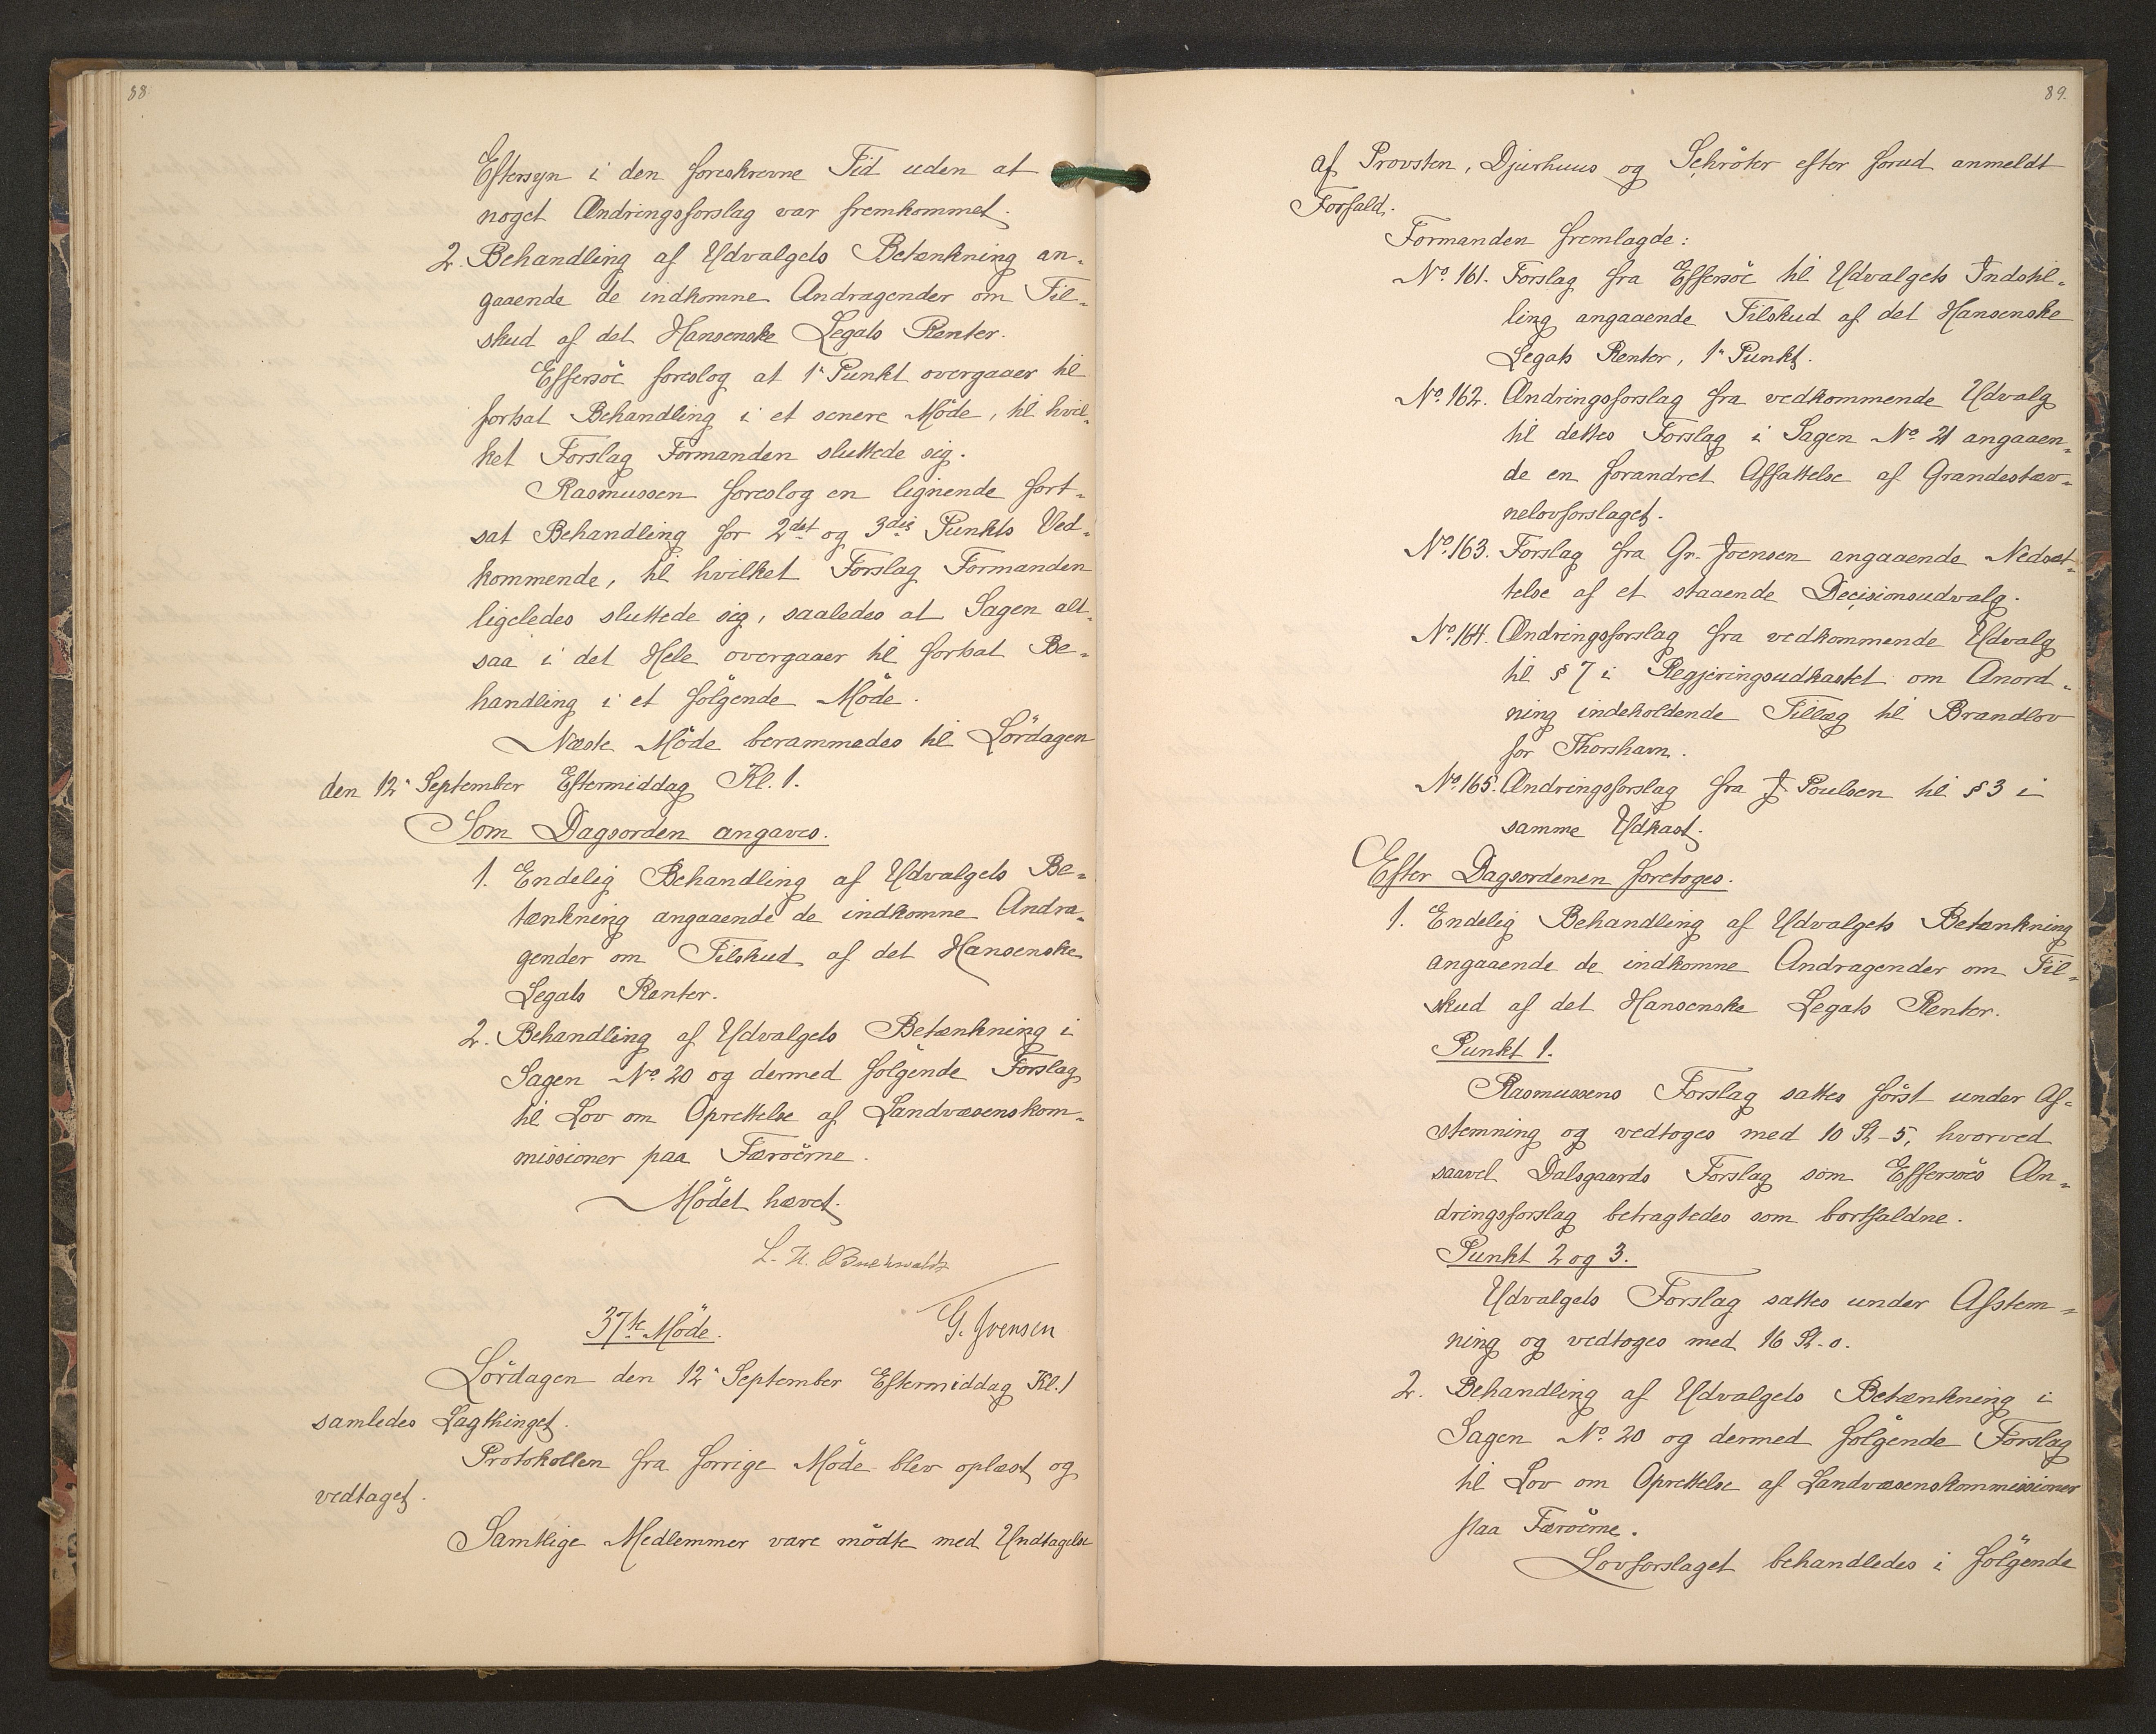 88
Eftersyn i den foreskrevne Tid uden at
noget Ændringsforslag var fremkommet.
2. Behandling af Udvalgets Betænkning an-
gaaende de indkomne Andragender om Til-
skud af det Hansenske Legats Renter.
Effersöe foreslog at 1ˢ Punkt overgaaer til
fortsat Behandling i et senere Möde, til hvil-
ket Forslag Formanden sluttede sig.
Rasmussen foreslog en lignende fort-
sat Behandling for 2det og 3dis Punkts Ved-
kommende, til hvilket Forslag Formanden
ligeledes sluttede sig, saaledes at Sagen alt-
saa i det Hele overgaaer til fortsat Be-
handling i et fölgende Möde.
Næste Möde berammedes til Lördagen
den 12ˢ September Eftermiddag Kl. 1.
Som Dagsorden angaves.
1. Endelig Behandling af Udvalgets Be-
tænkning angaaende de indkomne Andra-
gender om Tilskud af det Hansenske
Legats Renter.
2. Behandling af Udvalgets Betænkning i
Sagen No. 20 og dermed fölgende Forslag
til Lov om Oprettelse af Landvæsenskom-
missioner paa Færöerne.
Mödet hævet.
L. H. Buchwaldt
G. Joensen
37te Möde.
Lördagen den 12ˢ September Eftermiddag Kl. 1
samledes Lagthinget.
Protokollen fra forrige Möde blev oplæst og
vedtaget.
Samtlige Medlemmer vare mödte med Undtagelse
89.
af Provsten, Djurhuus og Schröter efter forud anmeldt
Forfald.
Formanden fremlagde:
No. 161. Forslag fra Effersöe til Udvalgets Indstil-
ling angaaende Tilskud af det Hansenske
Legats Renter, 1ˢ Punkt.
No. 162. Ændringsforslag fra vedkommende Udvalg
til dettes Forslag i Sagen No. 21 angaaen-
de en forandret Affattelse af Grandestæv-
nelovforslaget.
No. 163. Forslag fra Gr. Joensen angaaende Nedsæt-
telse af et staaende Decisionsudvalg.
No. 164. Ændringsforslag fra vedkommende Udvalg
til § 7 i Regjeringsudkastet om Anord-
ning indeholdende Tillæg til Brandlov
for Thorshavn.
No. 165. Ændringsforslag fra J. Poulsen til § 3 i
samme Udkast.
Efter Dagsordenen foretoges.
1. Endelig Behandling af Udvalgets Betænkning
angaaende de indkomne Andragender om Til-
skud af det Hansenske Legats Renter.
Punkt 1.
Rasmussens Forslag sattes först under Af-
stemning og vedtoges med 10 St-5, hvorved
saavel Dalsgaards Forslag som Effersöes Æn-
dringsforslag betragtedes som bortfaldne.
Punkt 2 og 3.
Udvalgets Forslag sattes under Afstem-
ning og vedtoges med 16 St-0.
2. Behandling af Udvalgets Betænkning i
Sagen No. 20 og dermed fölgende Forslag
til Lov om Oprettelse af Landvæsenskommissioner
paa Færöerne.
Lovforslaget behandledes i fölgende